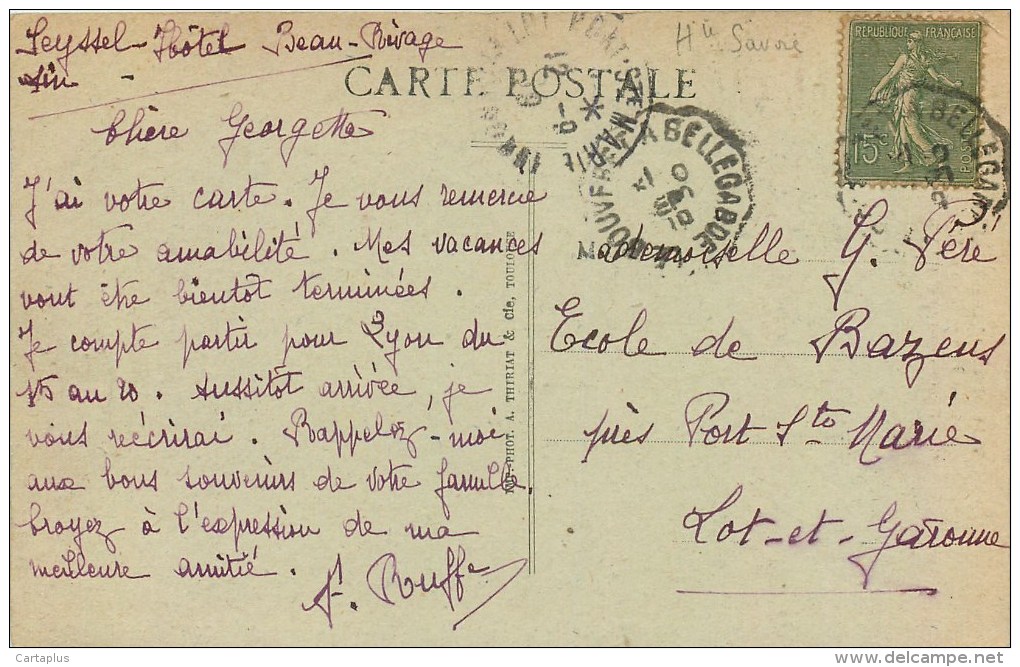 Seyssel - Hôtel Beau-Rivage
Ain -
Hte Savoie
CARTE POSTALE
RÉPUBLIQUE FRANÇAISE
15c
POSTES
BELLEGARDE
Chère Georgette
J'ai votre carte. Je vous remercie
de votre amabilité. Mes vacances
vont être bientôt terminées.
Je compte partir pour Lyon du
15 au 20. Aussitôt arrivée, je
vous récrirai. Rappelez-moi
aux bons souvenirs de votre famille.
Croyez à l'expression de ma
meilleure amitié.
A. Rouffe
IMP-PHOT. A. THIRIAT & Cie, TOULOUSE
Mademoiselle G. Père
Ecole de Bazens
près Port Ste Marie
Lot-et-Garonne
Cartaplus
www.delcampe.net